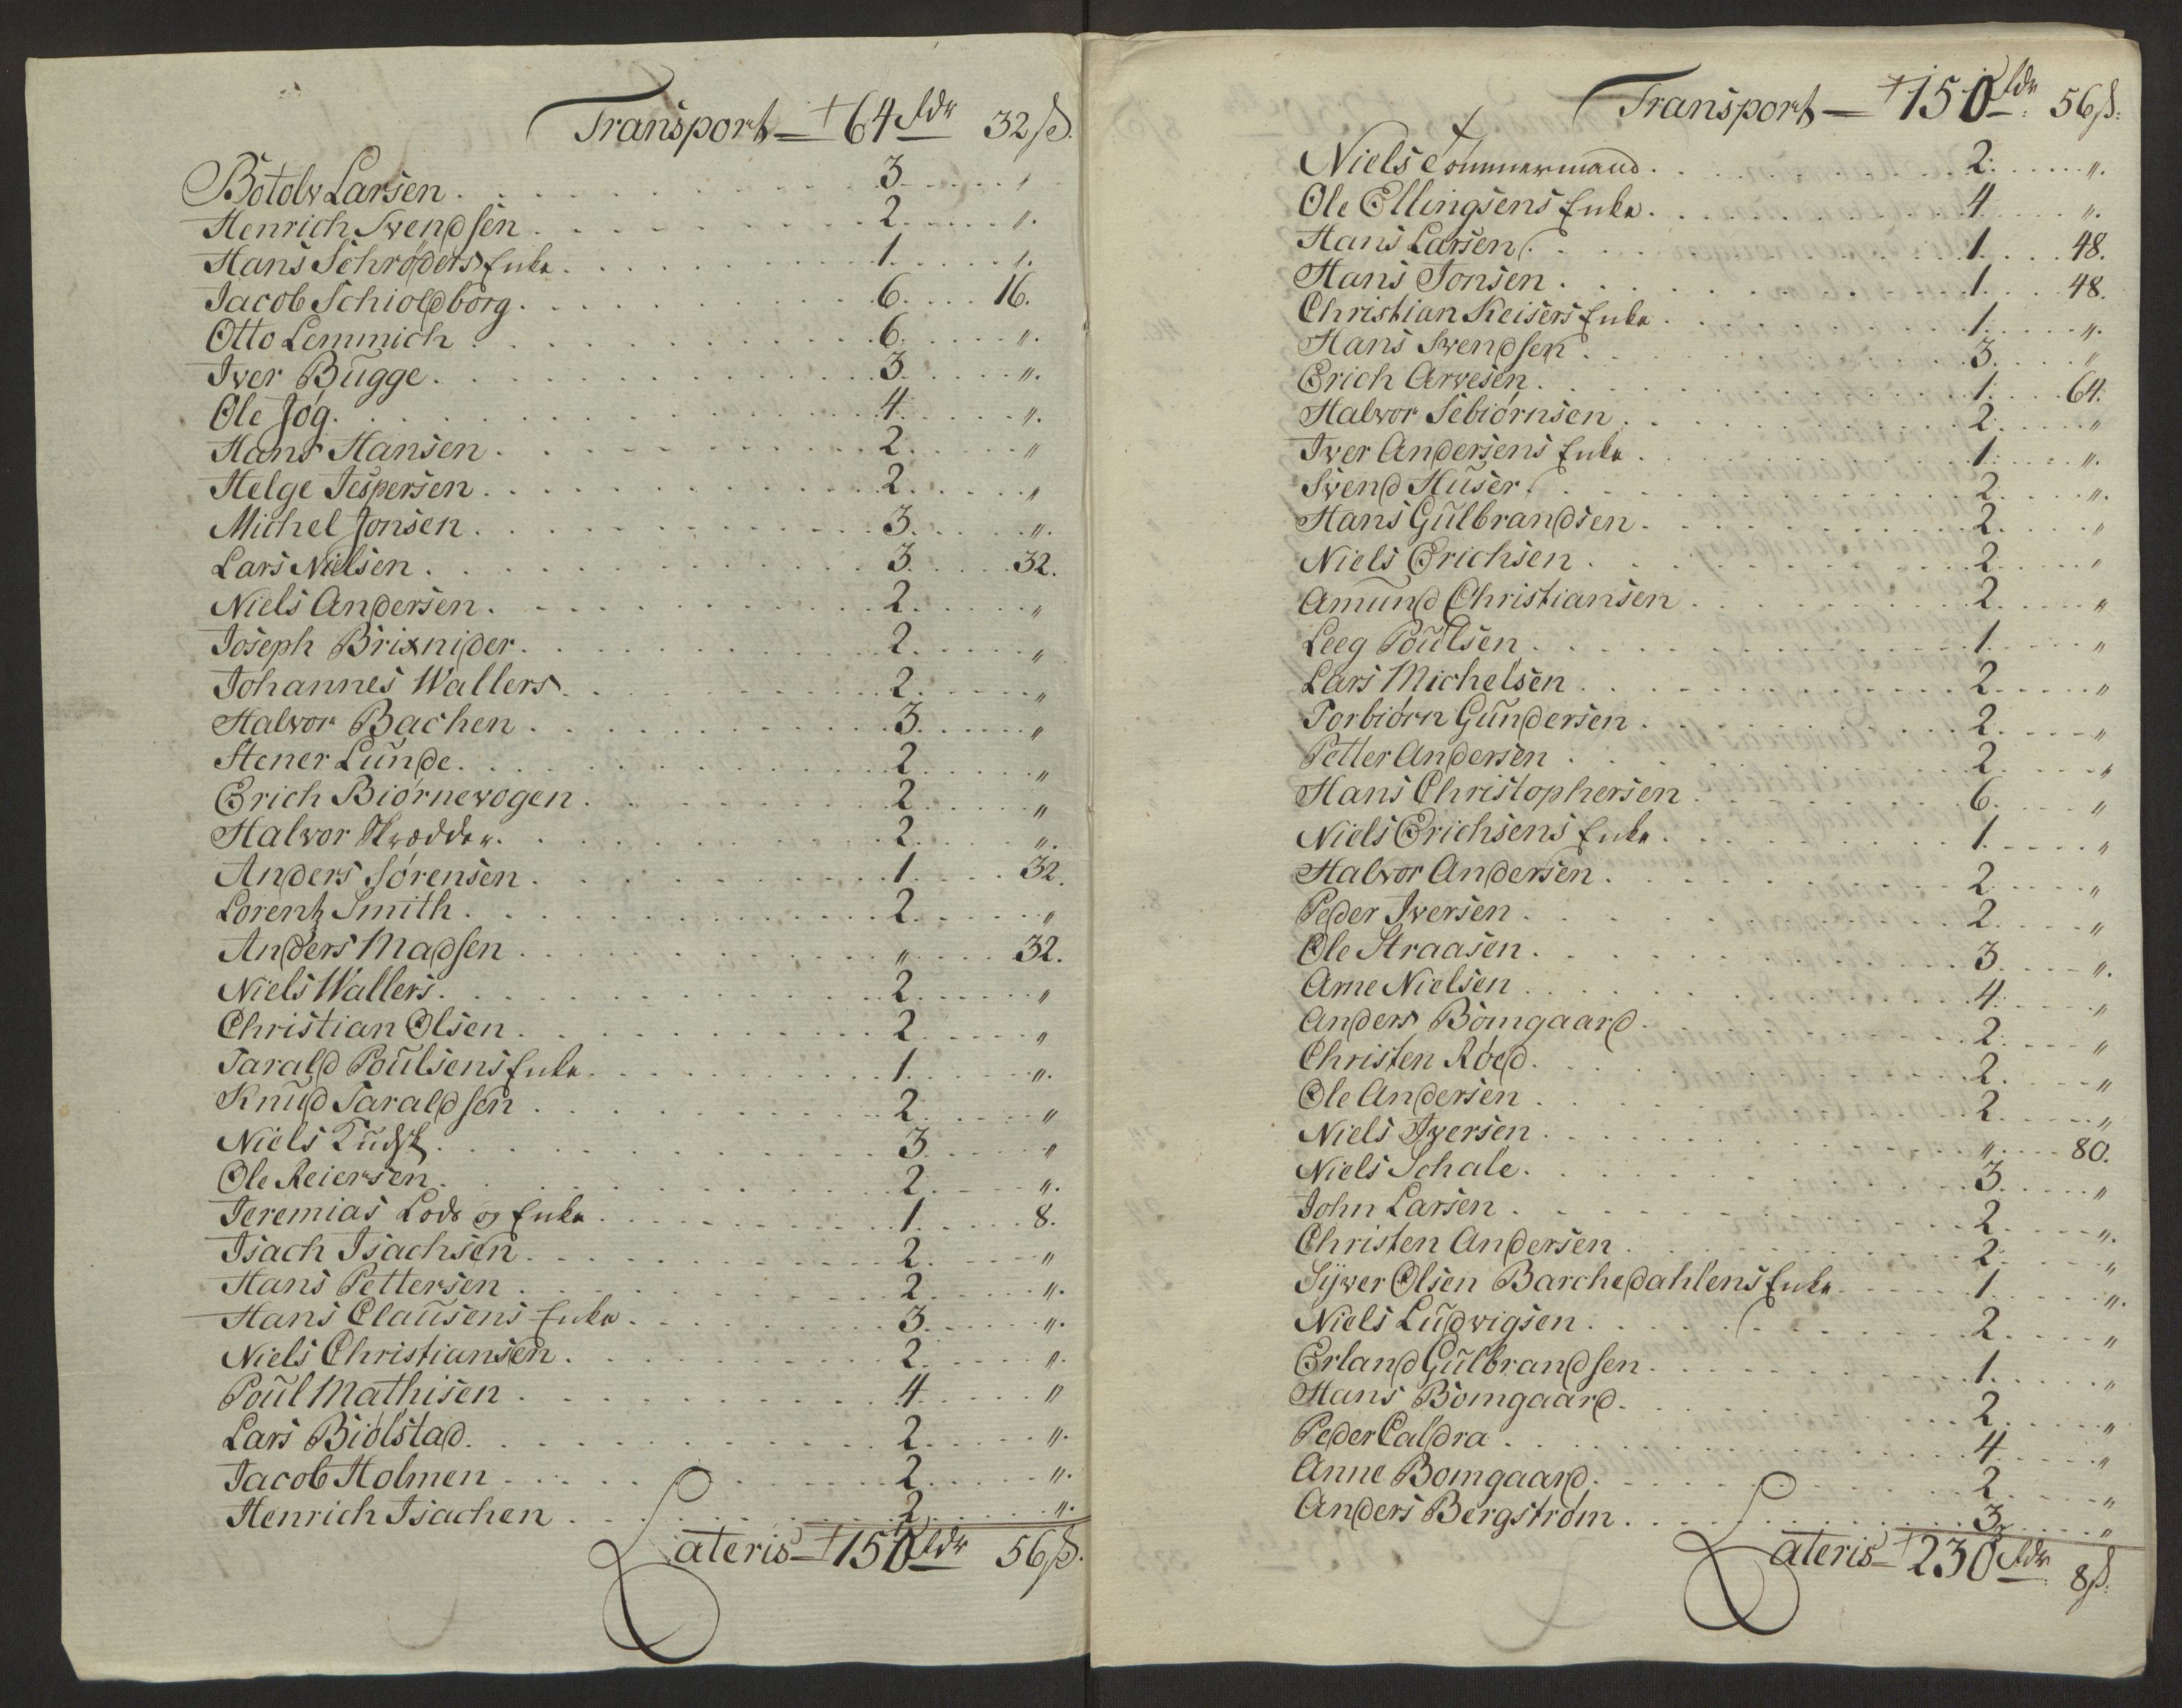 Transport — 64 rdr 32 ß.
Botolv Larsen . . . 3 . . . "
Henrich Svendsen . . . 2 . . . ".
Hans Schrøders Enke . . . 1 . . . ".
Jacob Schioldborg . . . 6 . . . 16.
Otto Lemmich . . . 6 . . . ".
Iver Bugge . . . 3 . . . ".
Ole Jøg . . . 4 . . . ".
Hans Hansen . . . 2 . . . "
Helge Jespersen . . . 2 . . . "
Michel Jonsen . . . 3 . . . ".
Lars Nielsen . . . 3 . . . 32.
Niels Andersen . . . 2 . . . "
Joseph Brixnider . . . 2 . . . "
Johannes Wallers . . . 2 . . . "
Halvor Bachen . . . 3 . . . "
Stener Lunde . . . 2 . . . "
Erich Biørnevogen . . . 2 . . . "
Halvor Skrædder . . . 2 . . . ".
Anders Sørensen . . . 1 . . . 32.
Lorentz Smith . . . 2 . . . "
Anders Madsen . . . " . . . 32.
Niels Wallers . . . 2 . . . "
Christian Olsen . . . 2 . . . "
Tarald Poulsens Enke . . . 1 . . . ".
Knud Taraldsen . . . 2 . . . "
Niels . . . 3 . . . "
Ole Reiersen . . . 2 . . . ".
Jeremias Lods og Enke . . . 1 . . . 8.
Isach Isachsen . . . 2 . . . "
Hans Pettersen . . . 2 . . . ".
Hans Clausens Enke . . . 3 . . . ".
Niels Christiansen . . . 2 . . . ".
Poul Mathisen . . . 4 . . . "
Lars Biølstad . . . 2 . . . ".
Jacob Holmen . . . 2 . . . ".
Henrich Isachen . . . 2 . . . ".
Lateris — 150 rdr 56 ß.
Transport — 150 rdr: 56 ß:
Niels Tømmermand . . . 2 . . . ".
Ole Ellingsens Enke . . . 4 . . . ".
Hans Larsen . . . 1 . . . 48.
Hans Jonsen . . . 1 . . . 48.
Christian Keisers Enke . . . 1 . . . ".
Hans Svendsen . . . 3 . . . "
Erich Arvesen . . . 1 . . . 64.
Halvor Sebiørnsen . . . 2 . . . "
Iver Andersens Enke . . . 1 . . . ".
Svend Huser . . . 2 . . . ".
Hans Gulbrandsen . . . 2 . . . "
Niels Erichsen . . . 2 . . . "
Amund Christiansen . . . 2 . . . "
Leeg Poulsen . . . 1 . . . "
Lars Michelsen . . . 2 . . . "
Torbiørn Gundersen . . . 2 . . . "
Petter Andersen . . . 2 . . . "
Hans Christophersen . . . 6 . . . "
Niels Erichsens Enke . . . 1 . . . "
Halvor Andersen . . . 2 . . . "
Peder Iversen . . . 2 . . . "
Ole Straasen . . . 3 . . . ".
Arne Nielsen . . . 4 . . . "
Anders Bomgaard . . . 2 . . . "
Christen Røed . . . 2 . . . "
Ole Andersen . . . 2 . . . "
Niels Iversen . . . " . . . 80.
Niels Schale . . . 3 . . . "
John Larsen . . . 2 . . . ".
Christen Andersen . . . 2 . . . "
Sÿver Olsen Barchedahlens Enke . . . 1 . . . ".
Niels Ludvigsen . . . 2 . . . "
Erland Gulbrandsen . . . 1 . . . "
Hans Bomgaard . . . 2 . . . "
Peder Caldra . . . 4 . . . "
Anne Bomgaard . . . 2 . . . "
Anders Bergstrøm . . . 3 . . . "
Lateris — 230 rdr 8 ß.